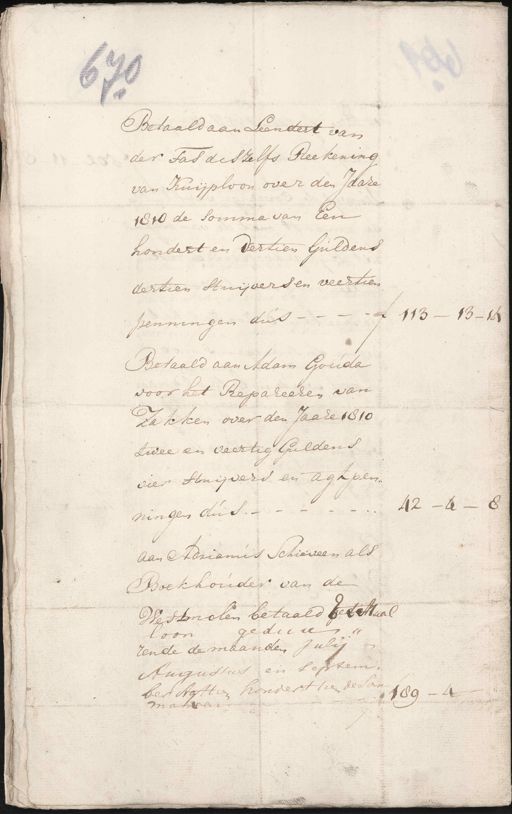 670
Betaald aan Leendert van
der Tas deszelfs Reekening
van Kuijploon over den Jaare
1810 de somma van Een
hondert en dertien Guldens
dertien stuijvers en veertien
penningen dús - - - - f 113 - 13 - 14
Betaald aan Adam Goúda
voor het Repareeren van
Zakken over den Jaare 1810
twee en veertig Guldens
vier stuijvers en agt pen-
ningen dús - - - - - - 42 - 4 - 8
aan Adrianús Schieveen als
Boekhoúder van de
betaald Maal
loon gedúú-
rende de maanden Julij
Augustus en Septem-
ber Agttien hondert tien de Som
ma van 189 - 4 -